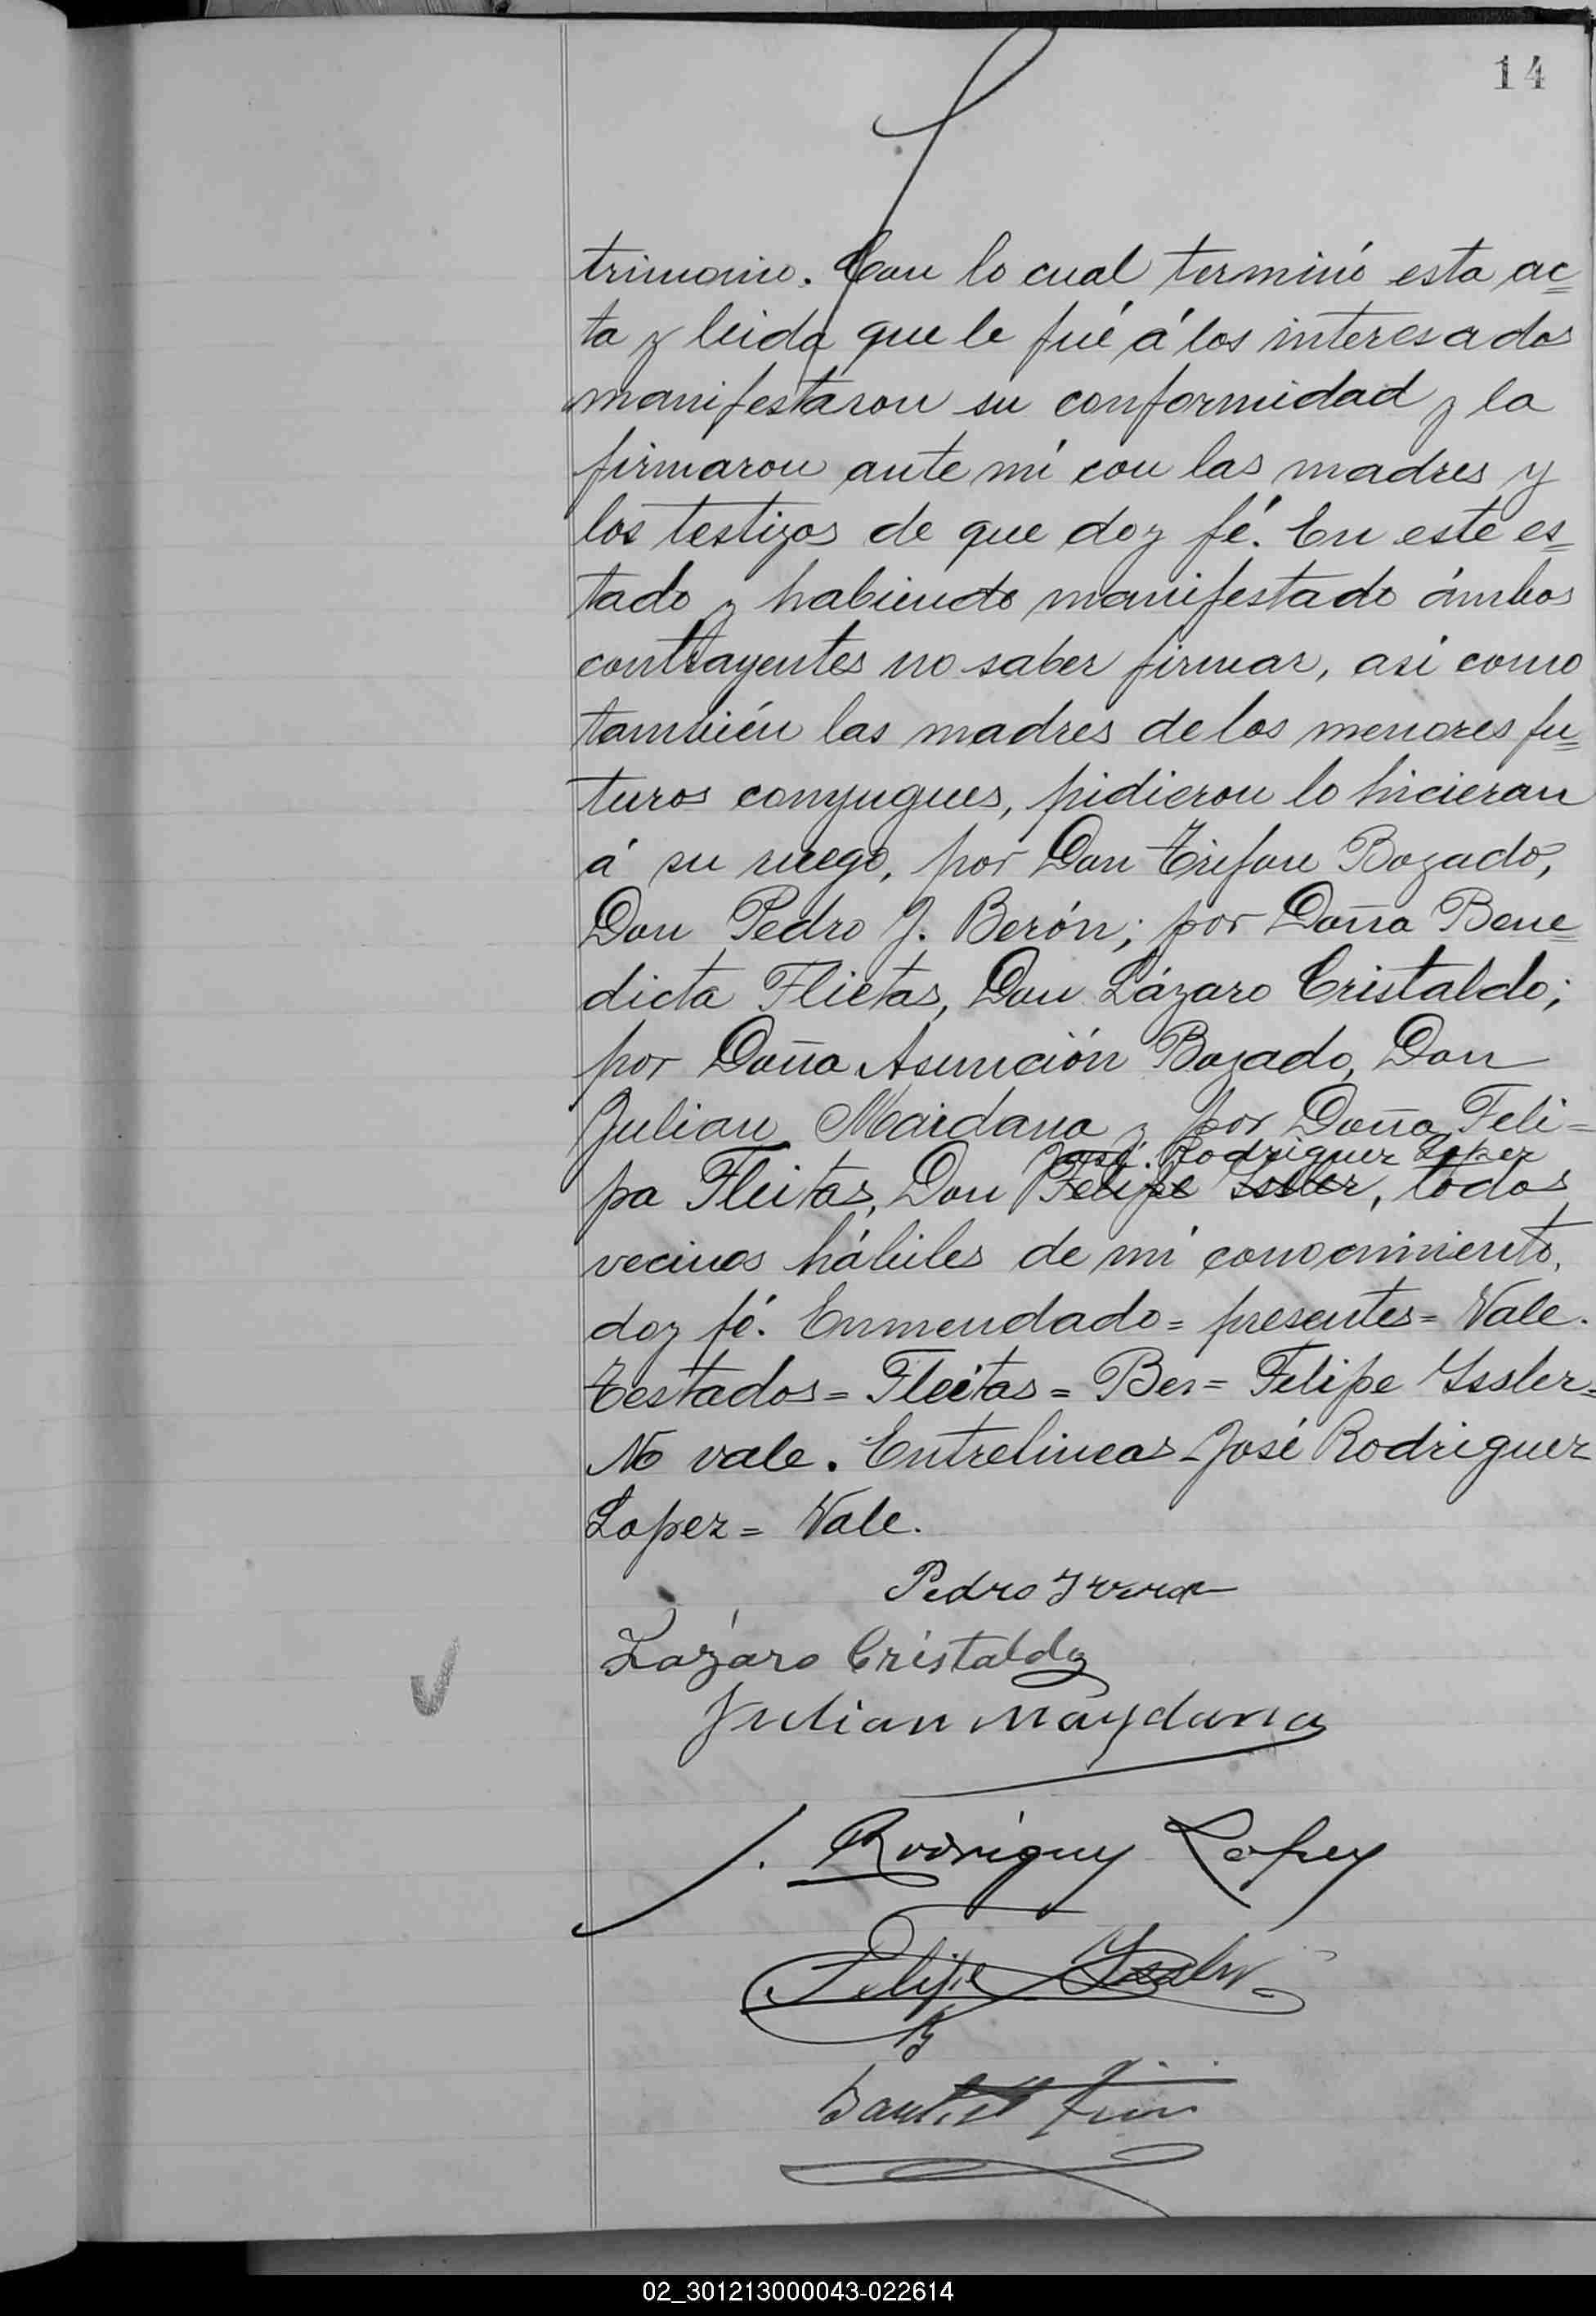 14
trimonio. Con lo cual terminó esta ac=
ta y leida que le fué á los interesados
manifestaron su conformidad y la
firmaron ante mi con las madres y
los testigos de que doy fé. En este es=
tado y habiendo manifestado ámbos
contrayentes no saber firmar, asi como
también las madres de los menores fu=
turos conyugues, pidieron lo hicieran
á su ruego, por Don Trifon Bogado,
Don Pedro J. Berón; por Doña Bene=
dicta Flietas, Don Lázaro Cristaldo;
por Doña Asunción Bogado, Don
Julian Maidana y por Doña Feli=
José Rodriguez Lopez
pa Fleitas, Don Felipe Issler, todos
vecinos hábiles de mi conocimiento,
doy fé. Enmendado= presentes= Vale.
Testados= Fleitas= Ber= Felipe Issler=
No vale. Entrelineas-José Rodriguez
Lopez= Vale.
Pedro
Lázaro Cristaldo
Julian Maydana
J. Rodriguez Lopez
Felipe Issler
02_301213000043-022614